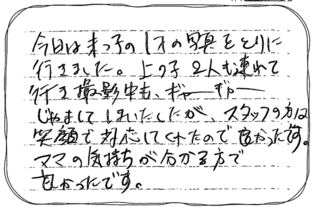 今日は末っ子の1才の写真をとりに
行きました。上の子2人も連れて
行き撮影中も、ギャーギャー
じゃましてしまいましたが、スタッフの方は
笑顔で対応してくれたので良かったです。
ママの気持ちが分かる方で
良かったです。